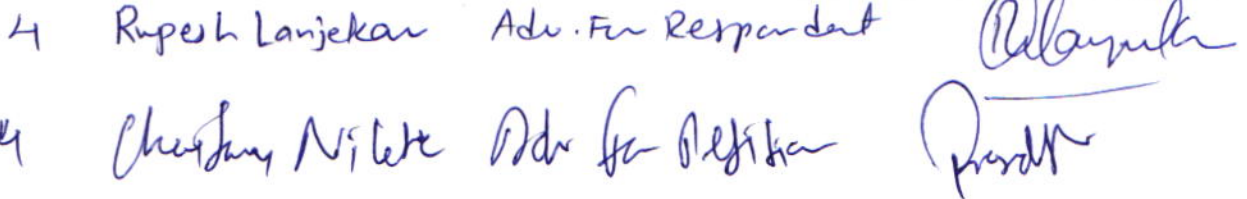 4 Rupesh Lanjekar Adv. For Respondent
4 Nikte Adv for Petition